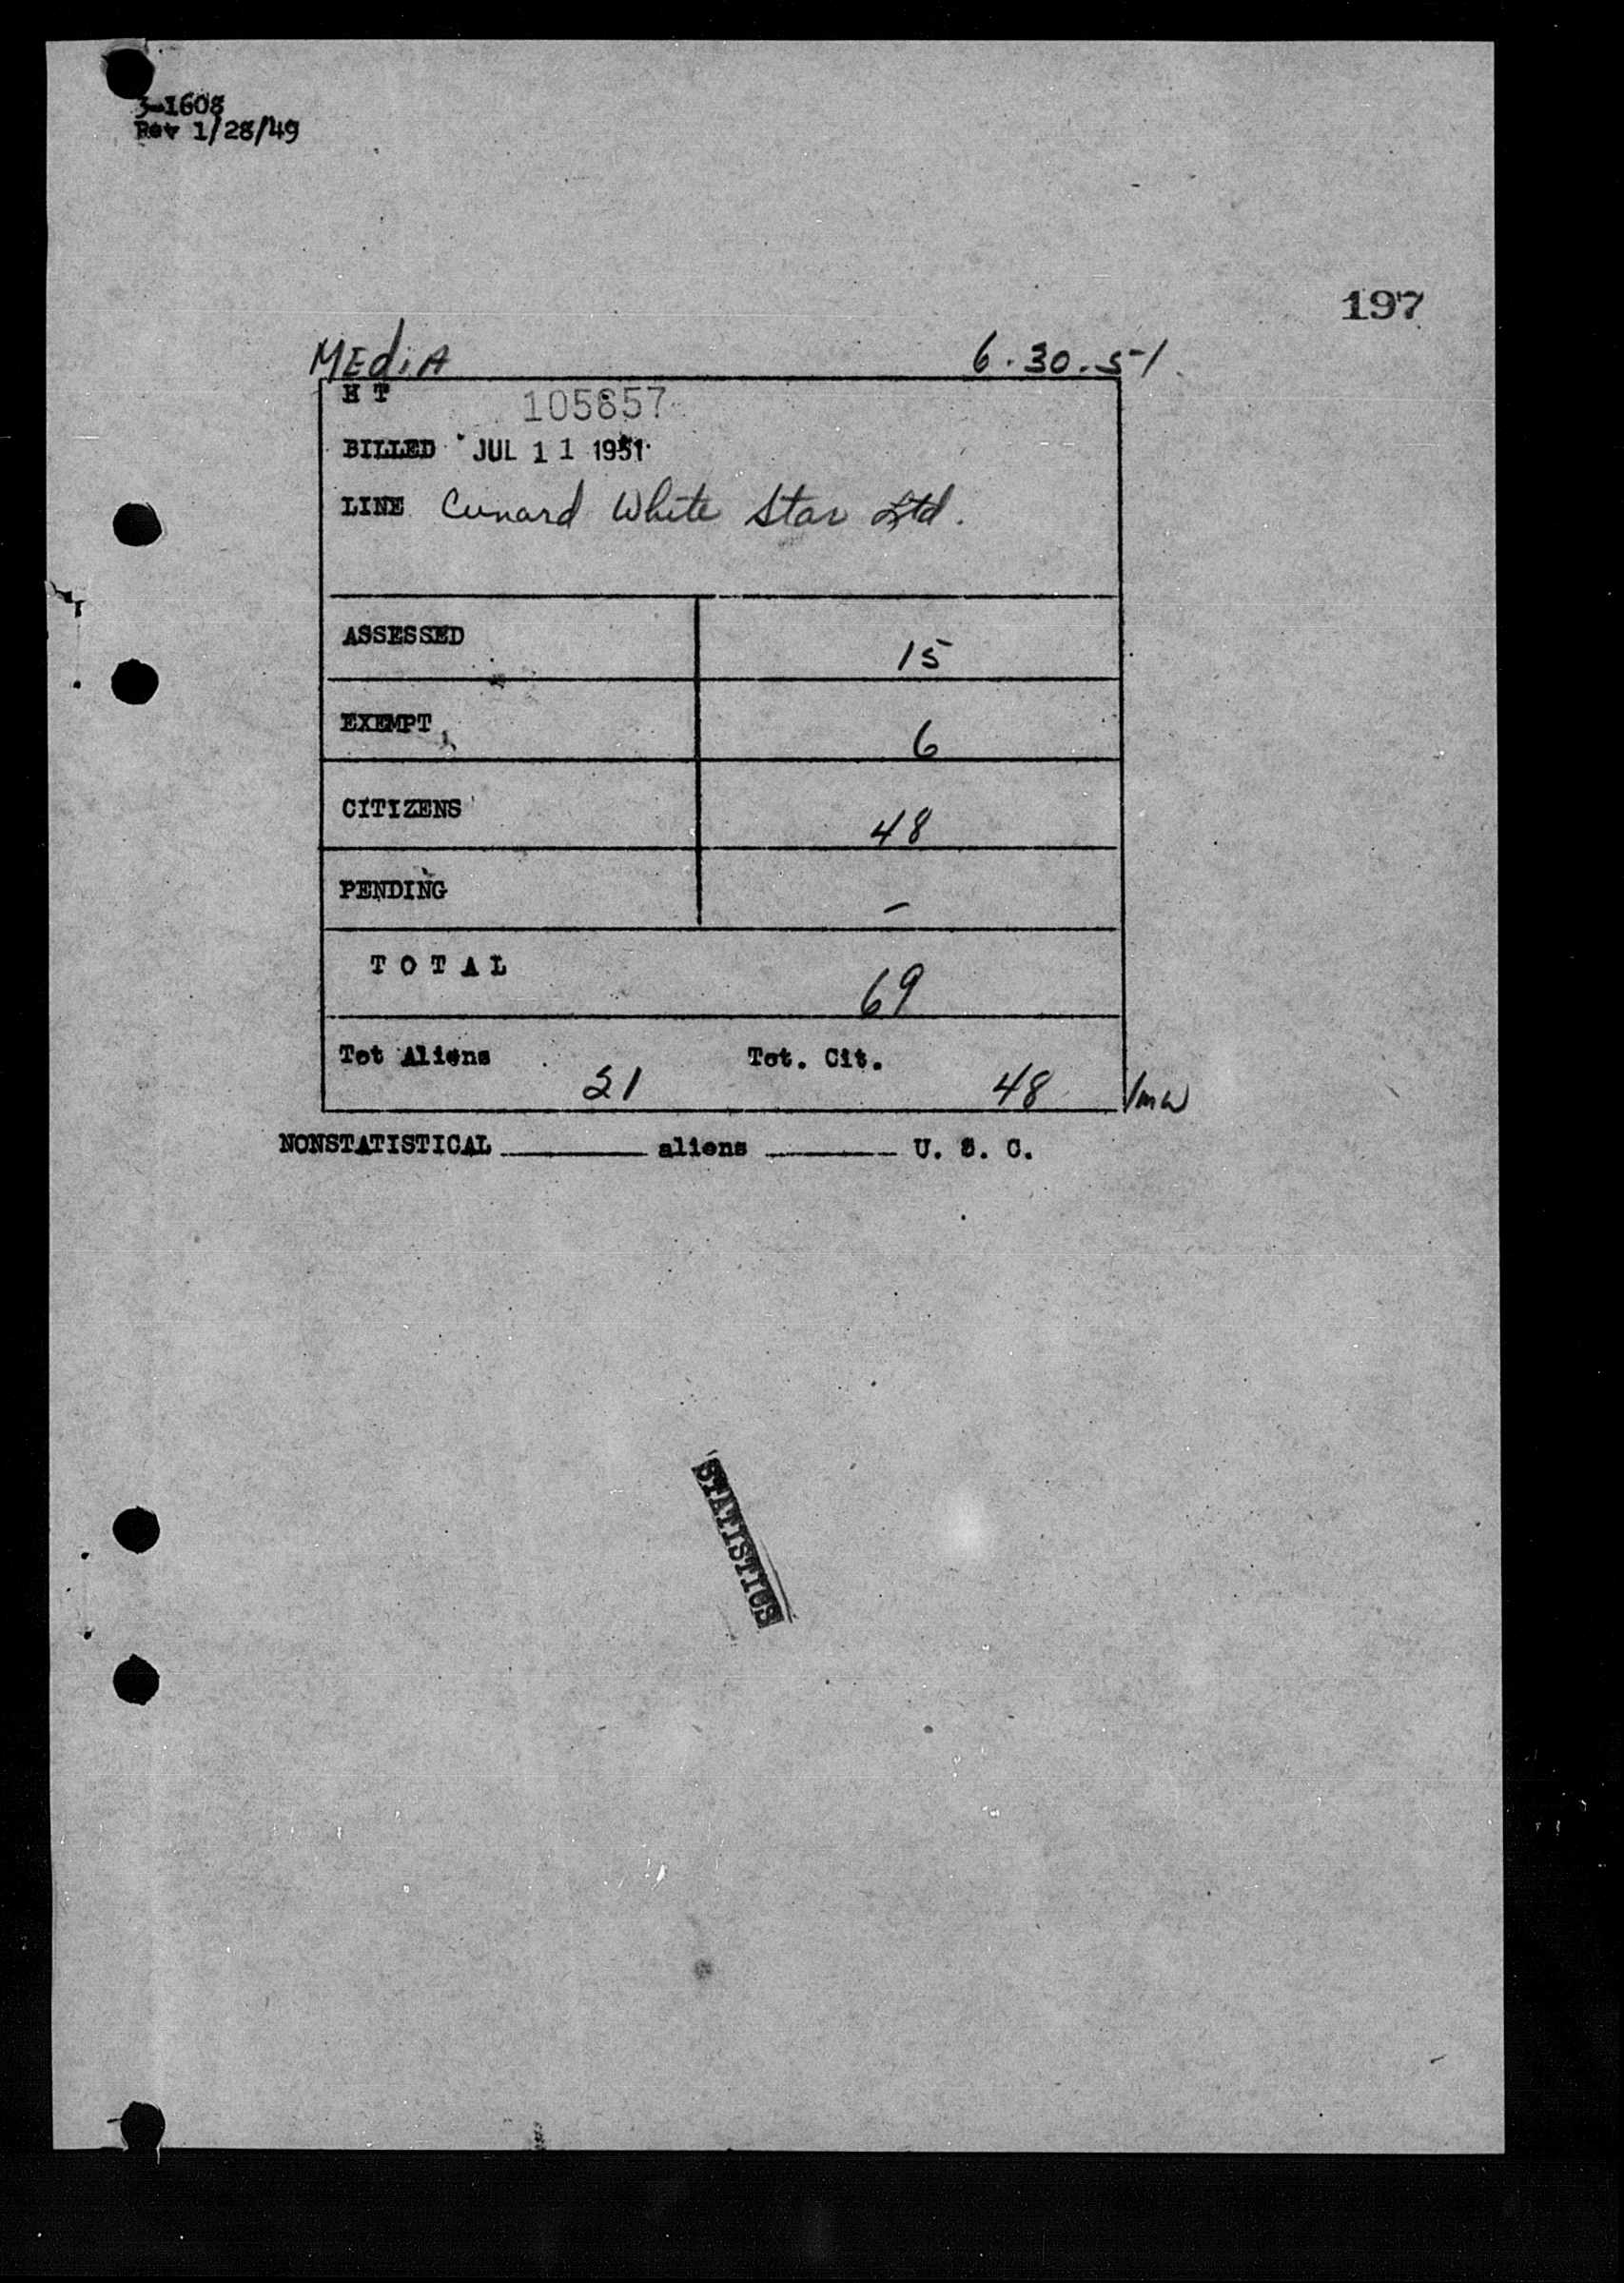 3-1608
Rev 1/28/49
197
MEdiA 6.30.51
H T 105857
BILLED JUL 11 1951
LINE Cunard White Star Ltd.
ASSESSED 15
EXEMPT 6
CITIZENS 48
PENDING –
TOTAL 69
Tot Aliens 21 Tot. Cit. 48 /mw
NONSTATISTICAL ______ aliens ______ U. S. C.
STATISTICS